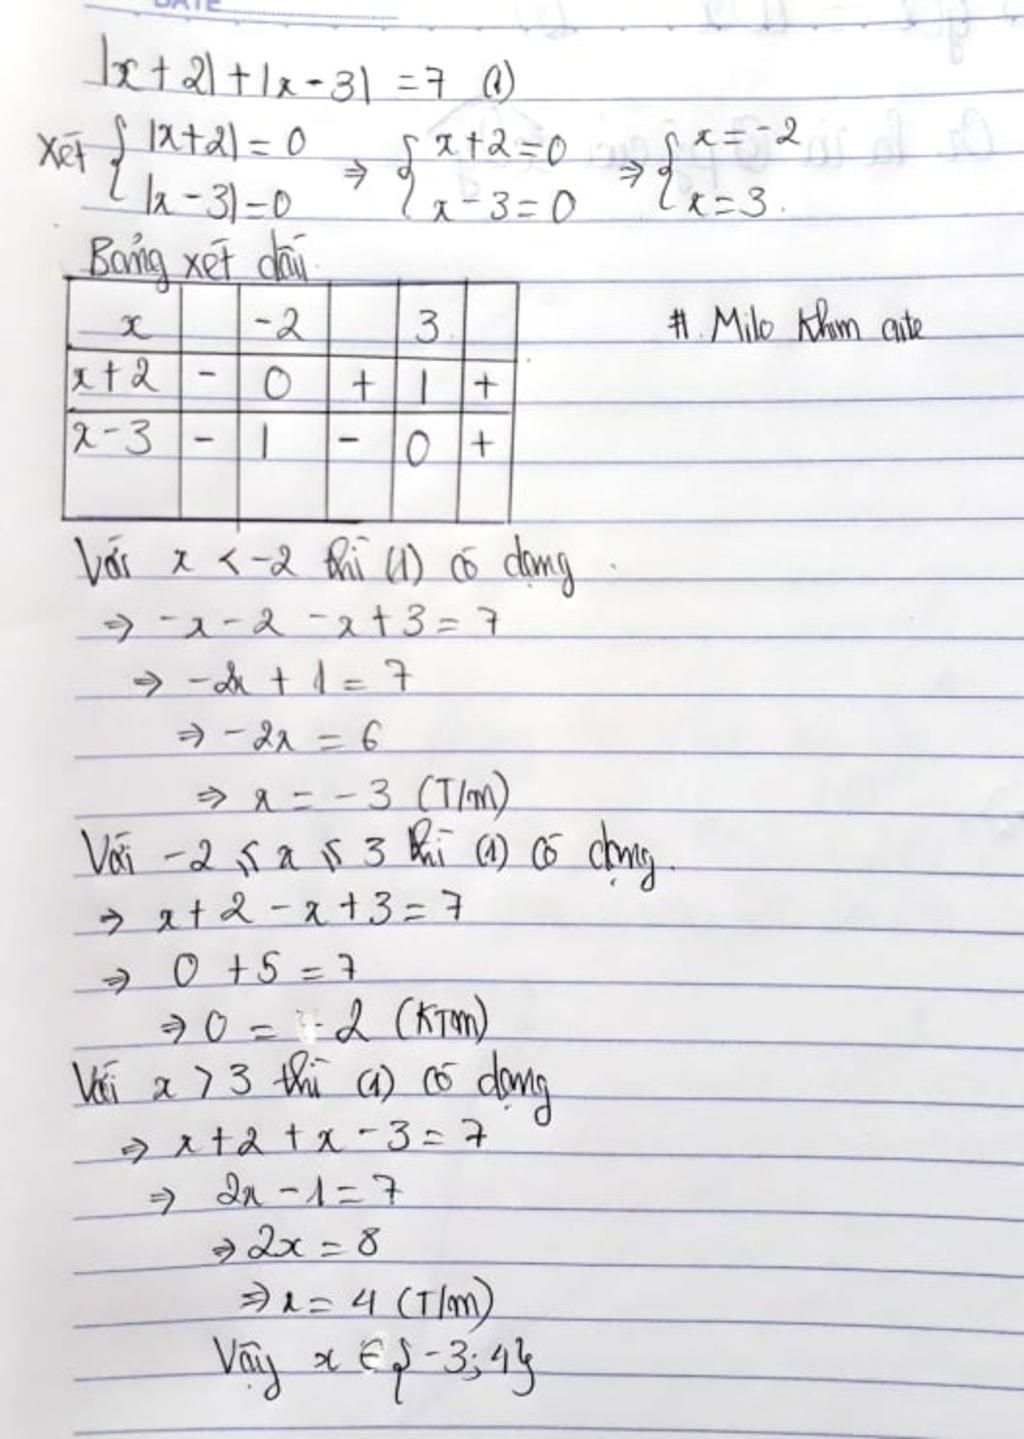 DATE
|x+2|+|x-3| = 7 (1)
Xét { |x+2| = 0 ⇒ { x+2=0 ⇒ { x=-2
|x-3|=0 x-3=0 x=3.
Bảng xét dấu
x -2 3
x+2 - 0 + | +
x-3 - | - 0 +
#. Milo Khm cute
Với x < -2 thì (1) có dạng
⇒ -x-2 -x+3=7
⇒ -2x + 1 = 7
⇒ -2x = 6
⇒ x = -3 (T/m)
Với -2 ≤ x ≤ 3 thì (1) có dạng.
⇒ x+2-x+3=7
⇒ 0 +5 =7
⇒ 0 = -2 (KTm)
Với x > 3 thì (1) có dạng
⇒ x+2+x-3=7
⇒ 2x-1=7
⇒ 2x = 8
⇒ x = 4 (T/m)
Vậy x ∈ {-3;4}